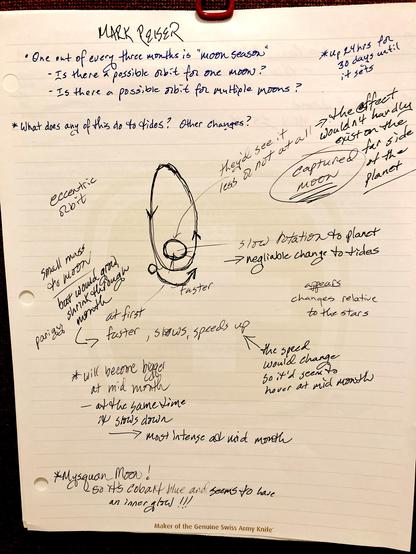 MARK REISER
• One out of every three months is "moon season"
- Is there a possible orbit for one moon?
- Is there a possible orbit for multiple moons?
* up 24 hrs for
30 days until
it sets
* What does any of this do to tides? Other changes?
they'd see it
less or not at all
→ the effect
wouldn't hardly
exist on the
far side
of the
planet
captured
moon
eccentric
orbit
slow rotation to planet
→ negliable change to tides
small mass
to moon
but would grow
shrink through
month
faster
appears
changes relative
to the stars
at first
faster, slows, speeds up
the speed
would change
so it'd seem to
hover at mid month
* will become bigger
at mid month
— at the same time
it slows down
→ most intense at mid month
* Mysquan Moon!
so its cobalt blue and seems to have
an inner glow!!!
Maker of the Genuine Swiss Army Knife